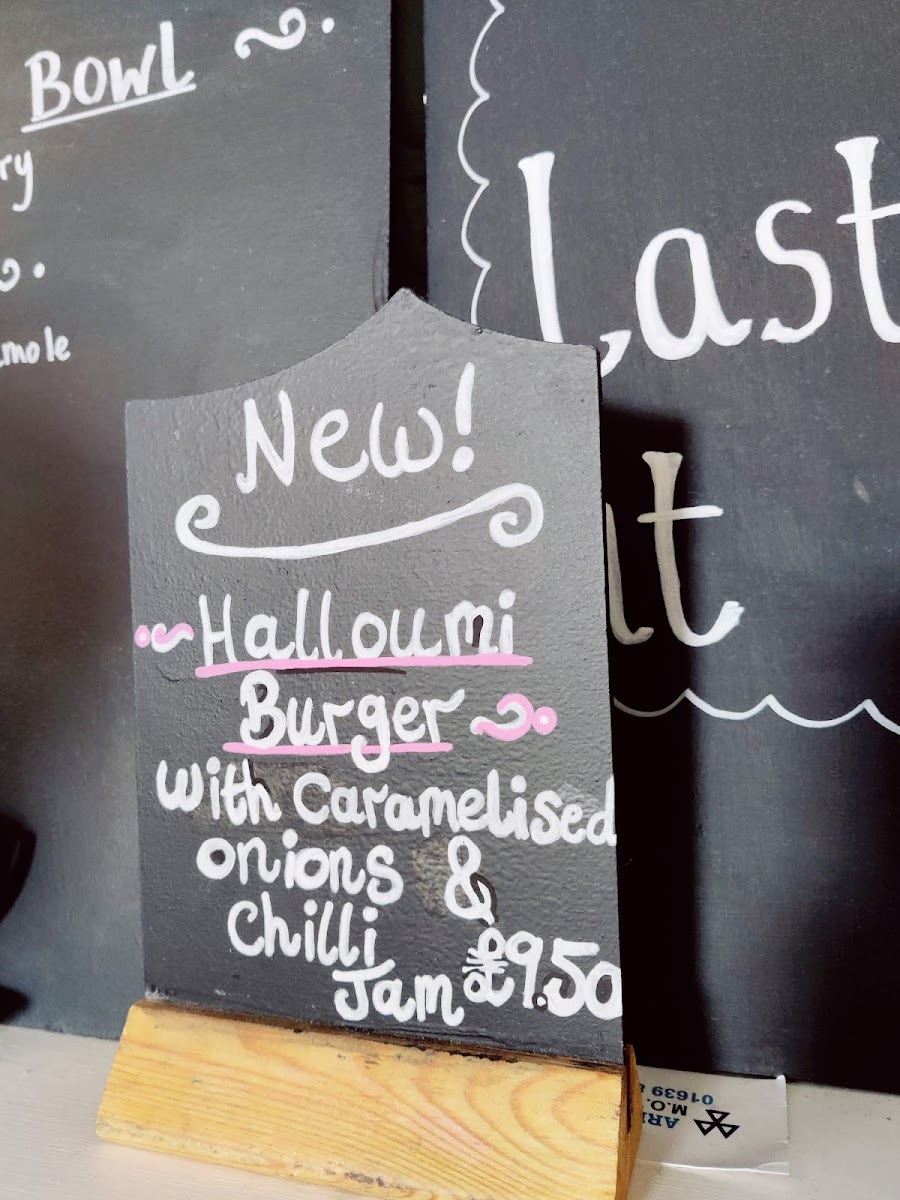 Bowl
Last
New!
Halloumi
Burger
with Caramelised
onions &
Chilli
Jam £9.50
01639
M.O.